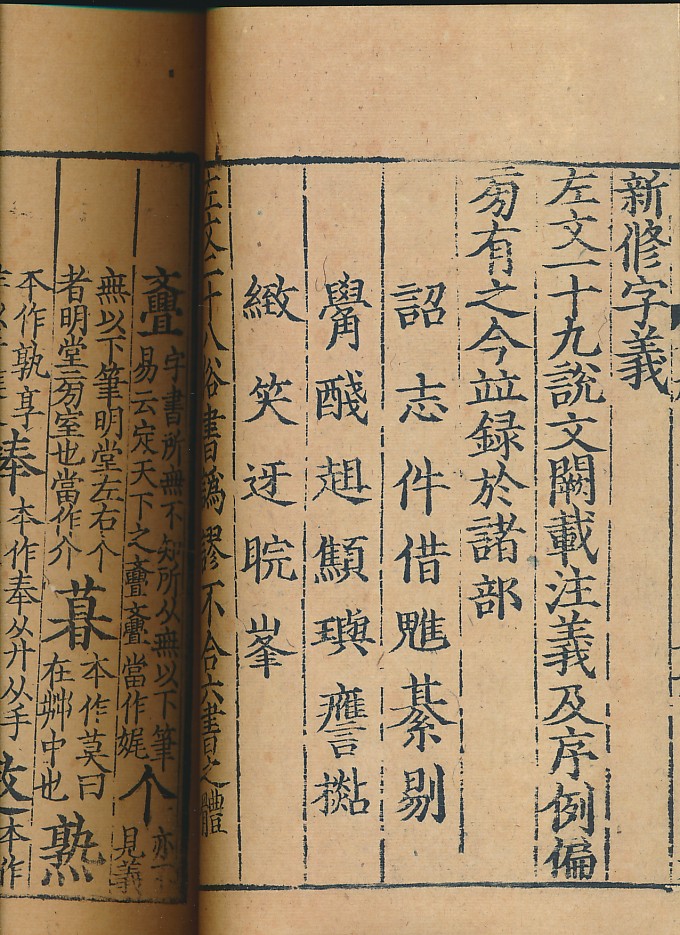 新修字義
左文一十九說文闕載注義及序例偏
㫄有之今竝録於諸部
詔志件借魋綦剔
觷醆趄顦璵譍樧
緻笑迓睆峯
左文二十八俗書譌謬不合六書之體
亹
字書所無不知所从無以下筆
易云定天下之亹亹當作娓
个
亦不
見義
無以下筆明堂左右个
者明堂㫄室也當作介
暮
本作莫日
在茻中也
熟
本作孰享
本作奉从廾从手
本作